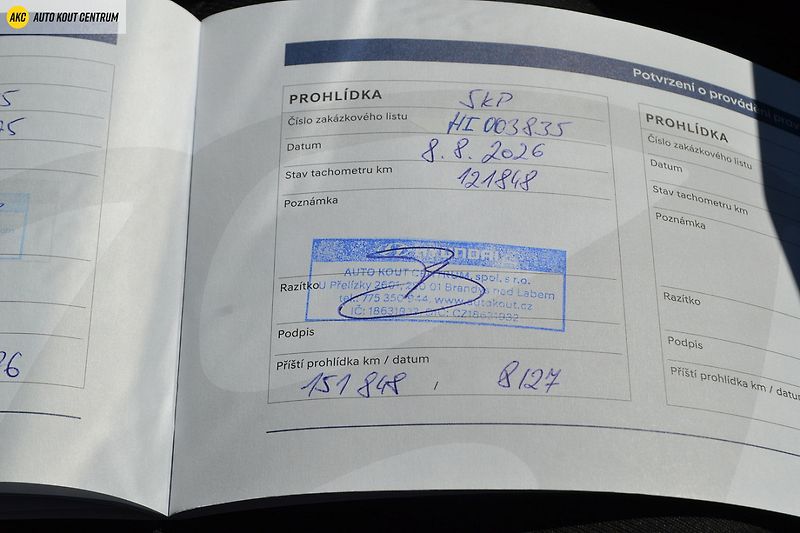 AKC AUTO KOUT CENTRUM
Potvrzení o provádění
PROHLÍDKA SKP
Číslo zakázkového listu HI 003835
Datum 8.8. 2026
Stav tachometru km 121848
Poznámka
HYUNDAI
AUTO KOUT CENTRUM, spol. s r.o.
Razítko
U Přelízky 2691, 250 01 Brandýs nad Labem
tel.: 775 350 944, www.autokout.cz
Podpis
Příští prohlídka km / datum
151 848 , 8/27
PROHLÍDKA
Číslo zakázkového listu
Datum
Stav tachometru km
Poznámka
Razítko
Podpis
Příští prohlídka km /